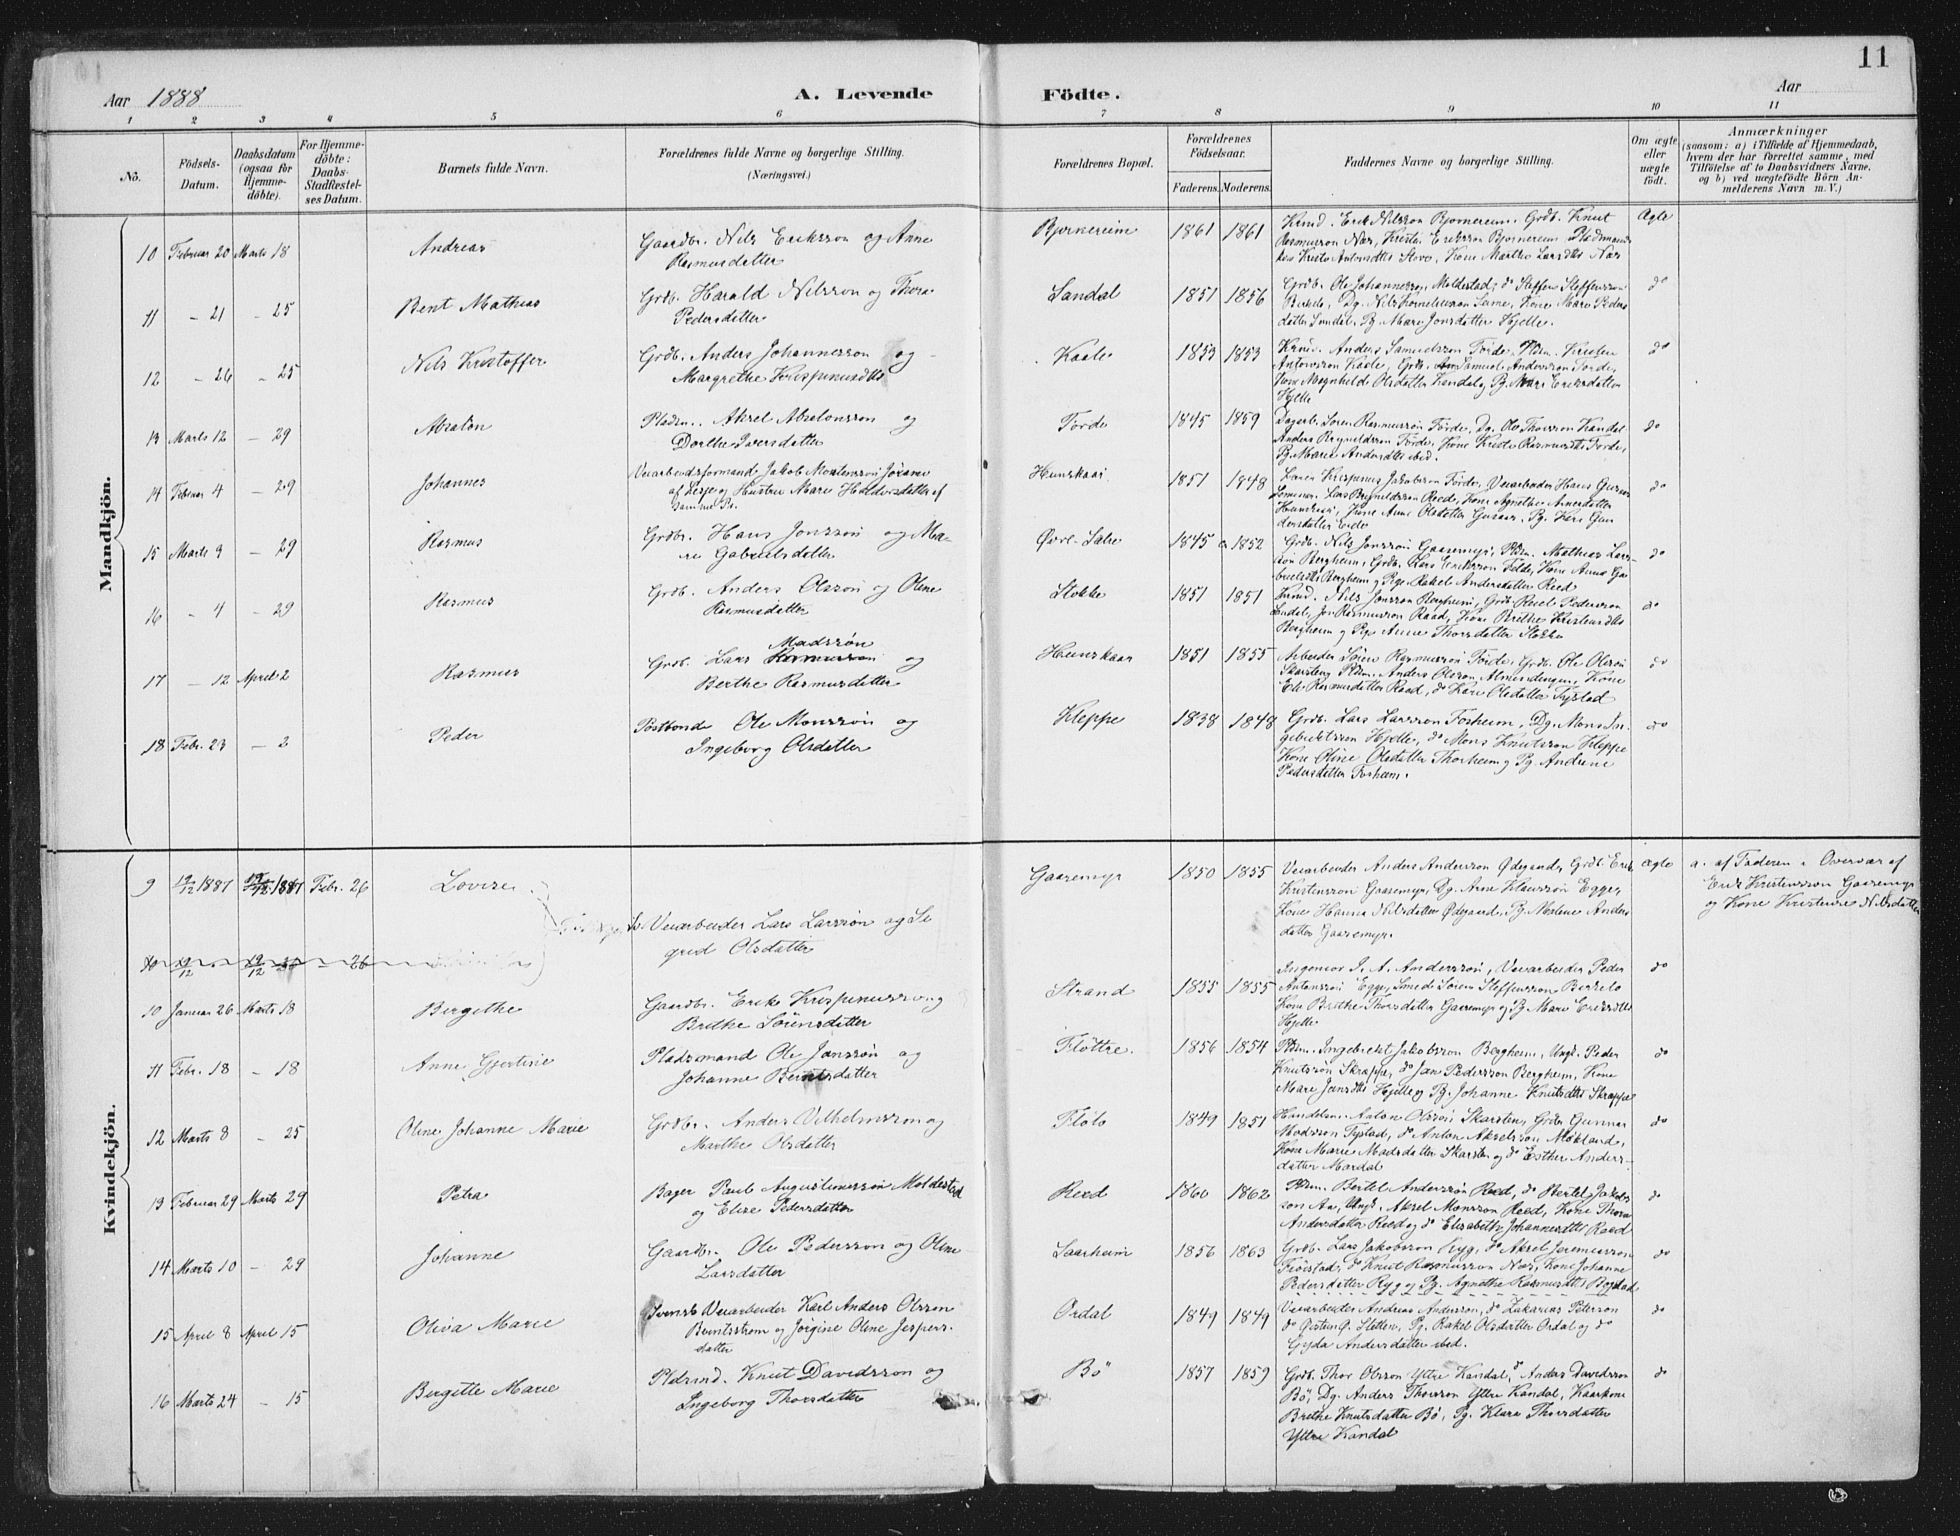 11
Aar 1888
A. Levende Födte.
Aar
1 2 3 4 5 6 7 8 9 10 11
No.
Födsels-Datum.
Daabsdatum (ogsaa for Hjemmedöbte).
For Hjemmedöbte: Daabs-Stadfæstelses Datum.
Barnets fulde Navn.
Forældrenes fulde Navne og borgerlige Stilling. (Næringsvei.)
Forældrenes Bopæl.
Forældrenes Födselsaar.
Faderens. Moderens.
Faddernes Navne og borgerlige Stilling.
Om ægte eller uægte födt.
Anmærkninger
(saasom: a) i Tilfælde af Hjemmedaab, hvem der har forrettet samme, med Tilföielse af to Daabsvidners Navne, og b) ved uægtefödte Börn Anmelderens Navn m. V.)
Mandkjön.
10 Februar 20 Marts 18 Andreas Gaardbr. Nils Eriksson og Anne
Rasmusdatter
Bjørnereim 1861 1861
Erik Nilsson Bjørnereim, Grdb. Knut
Rasmusson Nær, Krist. Eriksson Bjørnereim
Kone Marthe Larsdtr Nær
Ægte
11 - 21 - 25 Bent Mathias Grdb. Harald Nilsson og Thora
Pedersdatter
Sandal 1851 1856
Grdb. Ole Johannesson Moldestad, do Steffen Steffensson
Birkelo, Dg. Nils Korneliusson Seime, Kone Mari Peders
datter Sandal, Pg. Mari Jonsdatter Hjelle.
do
12 - 26 - 25 Nils Kristoffer Grdb. Anders Johannesson og
Margrethe Krispinusdtr
Kaale 1853 1853
Anders Samuelsson Førde, Pldm. Kristen
Antonsson Kaale, Grdb. Samuel Andersson Førde,
Kone Magnhilde Olsdatter Kandal og Pg. Mari Eriksdatter
Hjelle
do
13 Marts 12 - 29 Absalon Pladsm. Aksel Absalonsson og
Dorthe Iversdatter
Førde 1845 1859
Dagarb. Søren Rasmusson Førde, Dg. Ole Thorsson Kandal
Anders Brynildsson Førde, Kone Kristi Rasmusdtr Førde,
Pg. Marie Andersdtr ibid.
do
14 Februar 4 - 29 Johannes Veiarbeidsformand Jakob Mortensson
af Lesje og Hustru Mari Haldorsdatter af
samme Pr.
Hunskaar 1851 1848
Krispinus Jakobsson Førde, Veiarbeider Hans
Lars Brynildsson Reed, Kone Agnethe Arnesdatter
Hunskaar, Kone Anne Olsdatter
do
15 Marts 9 - 29 Rasmus Grdbr. Hans Jonsson og Ma-
ri Gabrielsdatter
Øvre-Sæle 1845 1852
Grdb. Nils Jonsson Gaaremyr, Pldm. Mathias Lars-
son Bergheim, Grdb. Lars Eriksson Felde, Kone Anna Ga-
brielsdtr Bergheim og Pge. Rakel Andersdatter Reed
do
16 - 4 - 29 Rasmus Grdb. Anders Olsson og Oline
Rasmusdatter
Stokke 1851 1851
Nils Jonsson Bergheim, Grdb. Roel Pedersson
Sandal, Jon Rasmusson Raad, Kone Brithe Kristensdtr
Bergheim og Pge Anne Thorsdatter Stokke
do
17 - 12 April 2 Rasmus Grdb. Lars Madssøn og
Berthe Rasmusdatter
Hunskaar 1851 1855
Arbeider Søren Rasmusson Førde, Grdb. Ole Olsson
Skarsten, Pldm. Anders Olsson Almendingen, Kone
Eli Rasmusdatter Raad, do Kari Olsdatter Tystad
do
18 Febr. 23 - 2 Peder Postbonde Ole Monssøn og
Ingeborg Olsdatter
Kleppe 1838 1848
Grdb. Lars Larsson Forheim, Dg. Mons In-
gebriktsson Hjelle, do Mons Knutsson Kleppe
Kone Oline Olsdatter Thorheim og Pg. Andrine
Pedersdatter Forheim.
do
Kvindekjön.
9 19/12 1887 19/12 1887 Febr. 26 Lovise
Veiarbeider Lars Larsson og Si-
grid Olsdatter
Gaaremyr 1850 1855
Veiarbeider Anders Andersson Ødegaard, Grdb. Erik
Kristensson Gaaremyr, Dg. Arne Klausson Egge,
Kone Hanna Nilsdatter Ødegaard, Pg. Nikoline Anders
datter Gaaremyr.
ægte
a. af Faderen i Overvær af
Erik Kristensson Gaaremyr
og Kone Kristense Nilsdatter
10 19/12 19/12 - 26
10 Januar 26 Marts 18 Bergithe Gaardbr. Erik Krispinusson og
Brithe Sørensdatter
Strand 1855 1855
Ingeniør J. A. Anderssøn, Veiarbeider Peder
Antonsson Egge, Smed Søren Steffensson Birkelo
Kone Brithe Thorsdatter Gaaremyr og Pg. Mari Eriksdtr
Hjelle
do
11 Febr. 18 - 18 Anne Gjertine Pladsmand Ole Janssøn og
Johanne Berntsdatter
Fløttre. 1856 1854
Pldm. Ingebrikt Jakobsson Bergheim, Ungk. Peder
Knutsson Skrappe, do Jan Pedersson Bergheim, Kone
Mari Jansdtr Hjelle og Pg. Johanne Knutsdtr Skrappe
do
12 Marts 8 - 25 Oline Johanne Marie Grdbr. Anders Vilhelmsson og
Marthe Olsdatter
Fløto 1849 1851
Handelsm. Anton Olsson Skarsten, Grdbr Gunnar
Madsson Tystad, do Anton Akselsson Møkland,
Kone Marie Madsdatter Skarsten og do Esther Anders-
datter Mardal
do
13 Februar 29 Marts 29 Petra Bager Paul Augustinusson Moldestad
og Elise Pedersdatter
Reed 1860 1862
Pldm. Bertel Andersson Reed, do Bertel Jakobs
son Aa, Ungk. Aksel Monsson Reed, Kone Thora
Andersdatter Reed og do Elisabeth Johannesdtr Reed
do
14 Marts 10 - 29 Johanne Gaardbr. Ole Pedersson og Oline
Larsdatter
Saarheim 1856 1863
Grdb. Lars Jakobsson Ryg, do Aksel Jeremiasson
Fløistad, do Knut Rasmusson Nær, Kone Johanne
Pedersdatter Ryg og Pg. Agnethe Rasmusdtr Bogstad
do
15 April 8 April 15 Oliva Marie Svensk Veiarbeider Karl Anders Olsson
Berntsstrøm og Jørgine Oline Jespers-
datter
Ordal 1849 1849
Veiarbeider Andreas Andersson, do Zakarias Peterson
do Øistein O. Sletten, Pg. Rakel Olsdatter Ordal og do
Gyda Andersdatter ibid.
do
16 Marts 24 - 15 Bergitte Marie Pldsmd. Knut Davidsson og
Ingeborg Thorsdatter
Bö 1857 1859
Grdb. Thor Olsson Yttre Kandal, do Anders Davidsson
Bö, Dg. Anders Thorsson Yttre Kandal, Kaarkone
Brithe Knutsdatter Bö, Pg. Klara Thorsdatter
Yttre Kandal
do